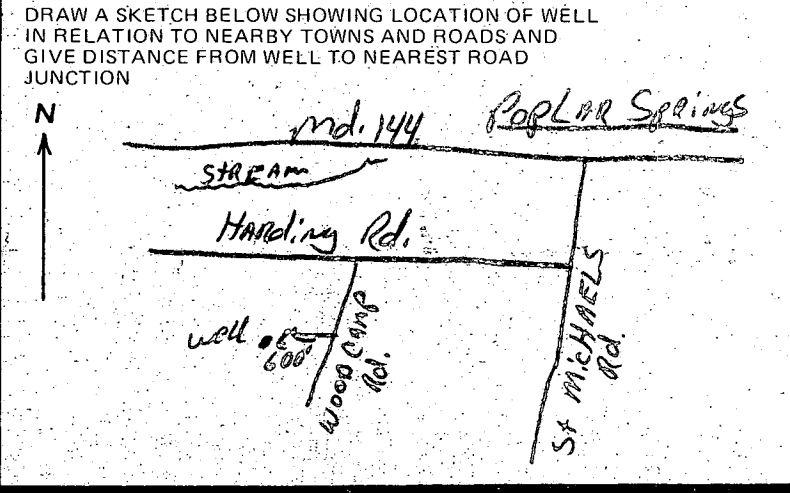 DRAW A SKETCH BELOW SHOWING LOCATION OF WELL
IN RELATION TO NEARBY TOWNS AND ROADS AND
GIVE DISTANCE FROM WELL TO NEAREST ROAD
JUNCTION
N
Md. 144
PopLAR SpRiNgS
StREAm
HARdiNg Rd.
well
600'
WOOD CAMP
Rd.
St MiCHAELS
Rd.